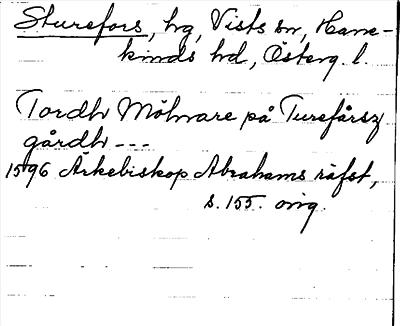 Sturefors, hg, Vists sn, Hane-
kinds hd, Österg. l.
Tordh Mölnare på Turefårsz
gårdh ---
1596 Ärkebiskop Abrahams räfst,
s. 155. orig.